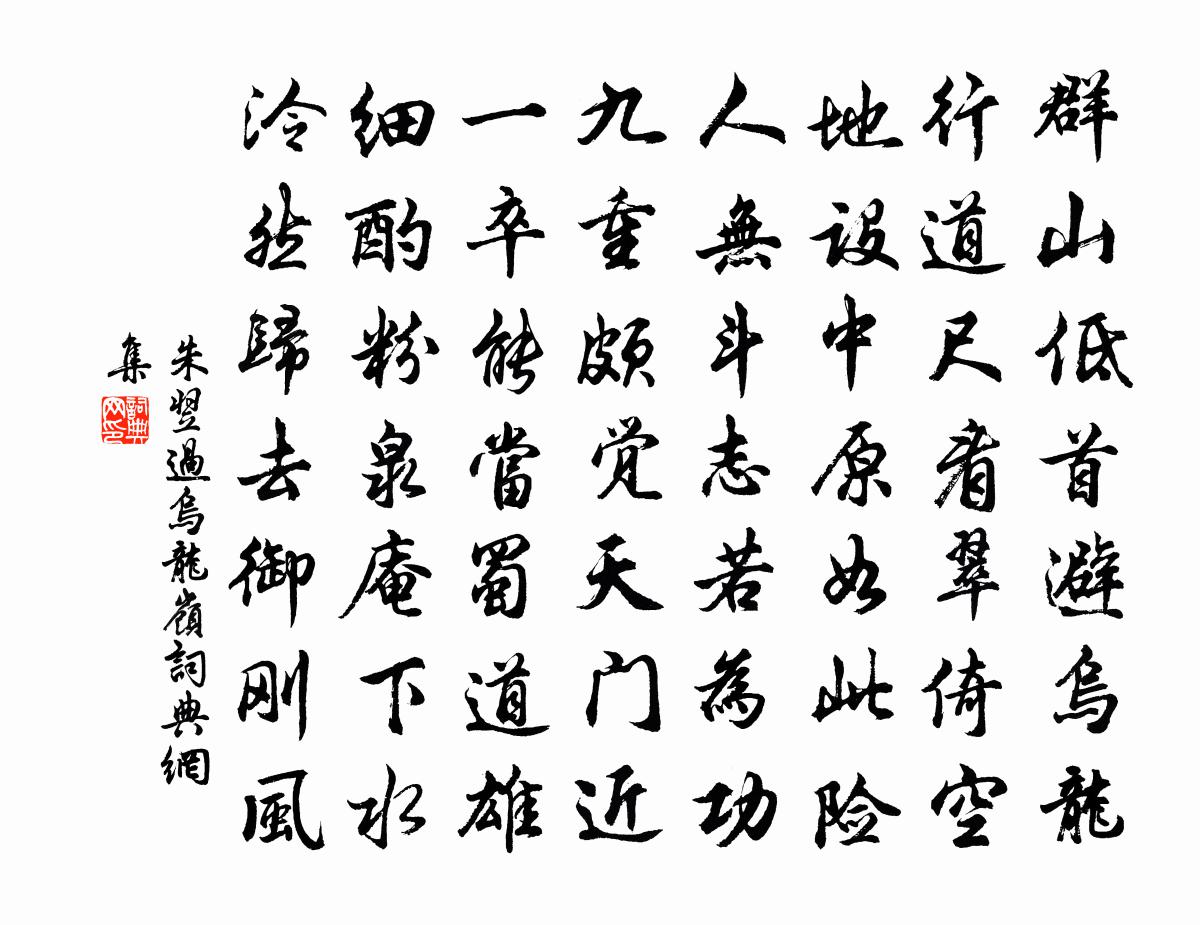 群山低首避烏龍
行道尺看翠倚空
地設中原如此险
人無斗志若為功
九重颇觉天门近
一卒能當蜀道雄
细酌粉泉庵下水
泠然歸去御刚風
朱翌過烏龍嶺詞典網
集
詞典网印